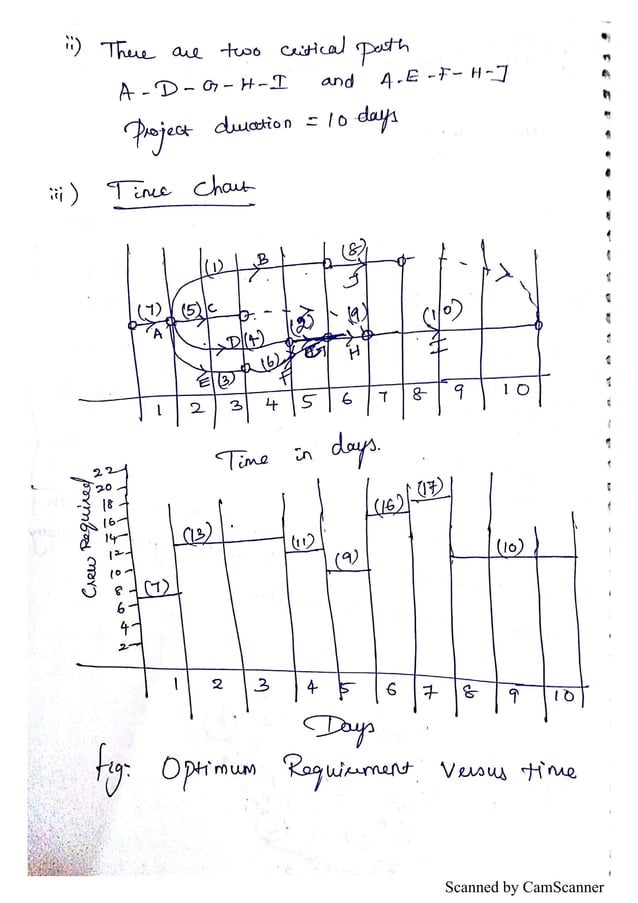 ii) There are two critical path
A - D - G - H - I and A - E - F - H - J
Project duration = 10 days
iii) Time Chart
(1) B (8)
J
(7) (5) C (2) (9) (10)
A D (4) G H I
E (3) (6) F
1 2 3 4 5 6 7 8 9 10
Time in days.
Crew Required
22
20
18
16
14
12
10
8
6
4
2
(7) (13) (11) (9) (16) (17) (10)
1 2 3 4 5 6 7 8 9 10
Days
fig: Optimum Requirement Versus time
Scanned by CamScanner